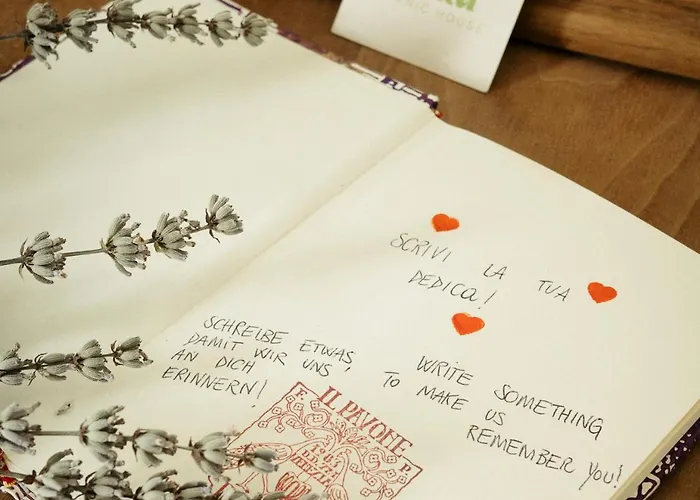 NIC HOUSE
SCRIVI LA TUA
DEDICA!
SCHREIBE ETWAS,
DAMIT WIR UNS
AN DICH
ERINNERN!
WRITE SOMETHING
TO MAKE US
REMEMBER YOU!
IL PAVONE